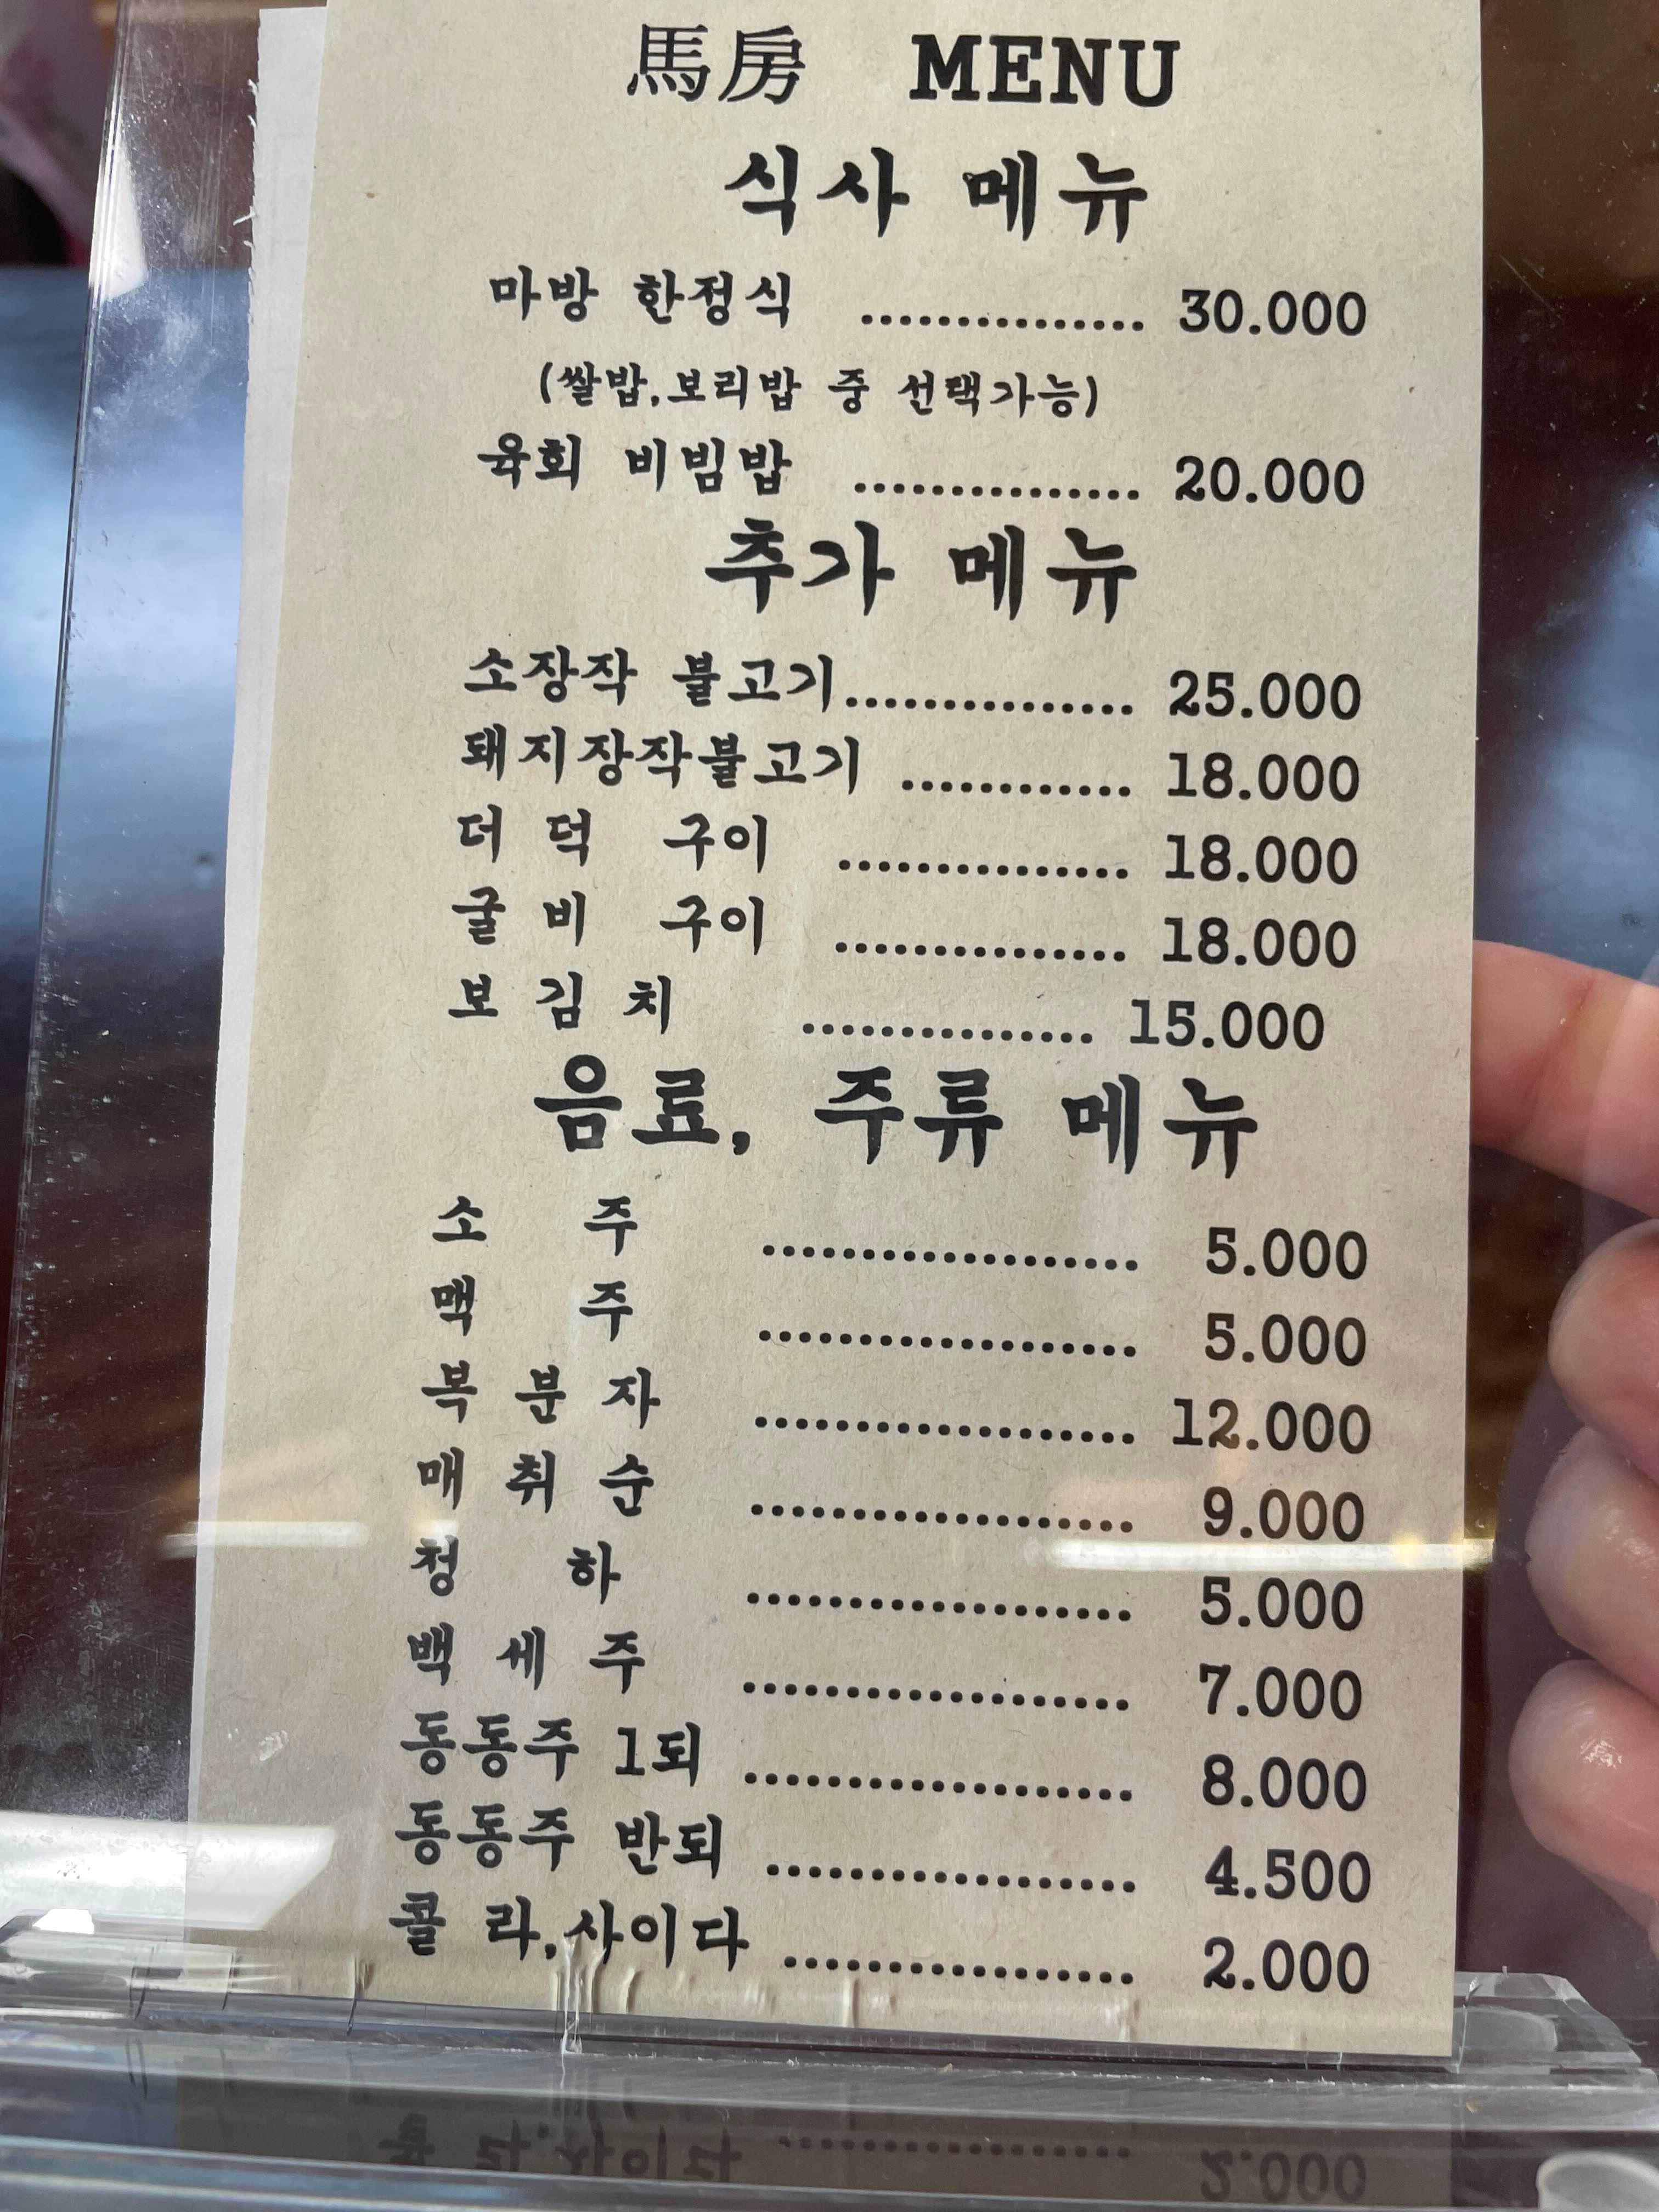 馬房 MENU
식사 메뉴
마방 한정식 ............... 30.000
(쌀밥,보리밥 중 선택가능)
육회 비빔밥 ............... 20.000
추가 메뉴
소장작 불고기............... 25.000
돼지장작불고기 ............ 18.000
더 덕 구이 ............... 18.000
굴 비 구이 ............... 18.000
보 김 치 ............... 15.000
음료, 주류 메뉴
소 주 ................... 5.000
맥 주 ................... 5.000
복 분 자 ................... 12.000
매 취 순 ................... 9.000
청 하 ................... 5.000
백 세 주 ................... 7.000
동동주 1되 ................... 8.000
동동주 반되 .................. 4.500
콜 라,사이다 ................. 2.000